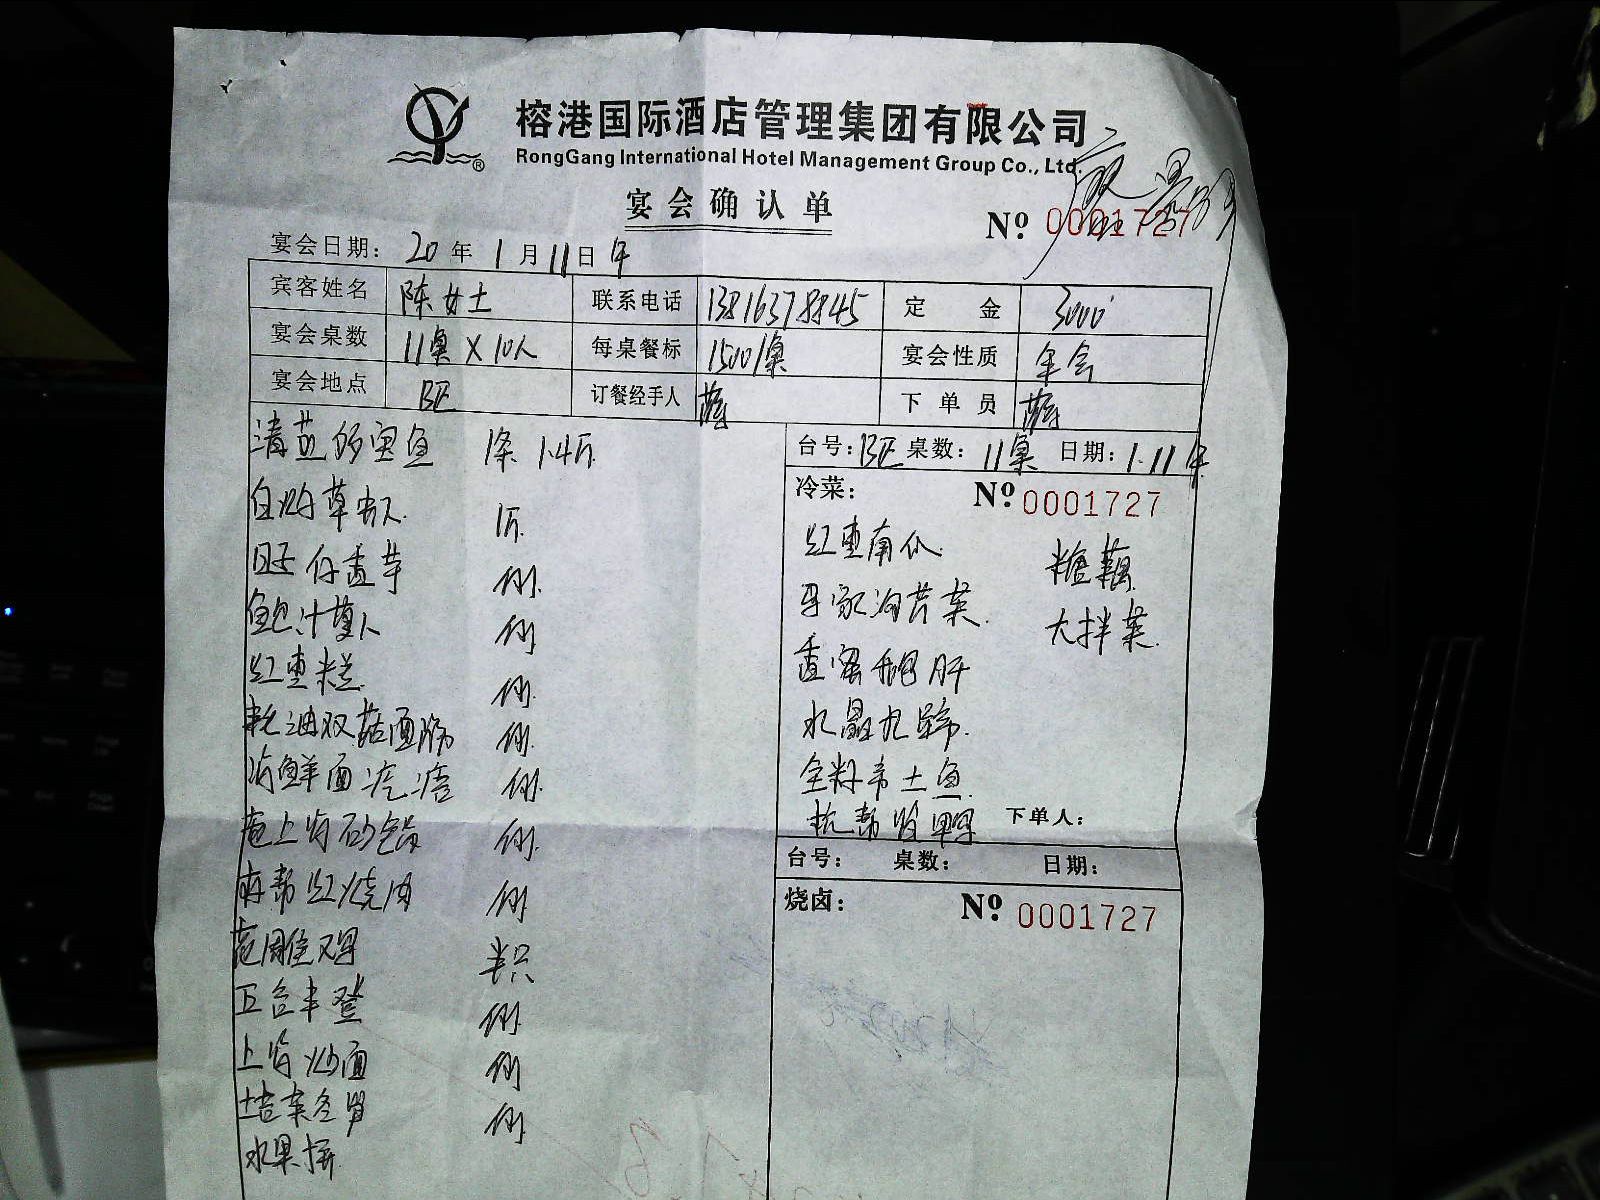 榕港国际酒店管理集团有限公司
RongGang International Hotel Management Group Co., Ltd.
宴会确认单
№ 0001727
宴会日期: 20 年 1 月 11 日 午
宾客姓名 陈女士 联系电话 13816378845 定金 3000
宴会桌数 11桌×10人 每桌餐标 1500/桌 宴会性质 年会
宴会地点 B区 订餐经手人 下单员
清蒸多宝鱼 1条 1.4斤
白灼草虾 1斤
仔香芋 例
鲍汁 例
红枣糕 例
蚝油双菇面筋 例
海鲜面疙瘩 例
老上海砂锅 例
本帮红烧肉 例
花雕 半只
五谷丰登 例
上海炒面 例
塔菜冬笋 例
水果拼
台号: B区 桌数: 11桌 日期: 1.11 午
冷菜: № 0001727
红枣南瓜 糖藕
大拌菜
香 鹅肝
水晶
土鱼
帮酱鸭 下单人:
台号: 桌数: 日期:
烧卤: № 0001727